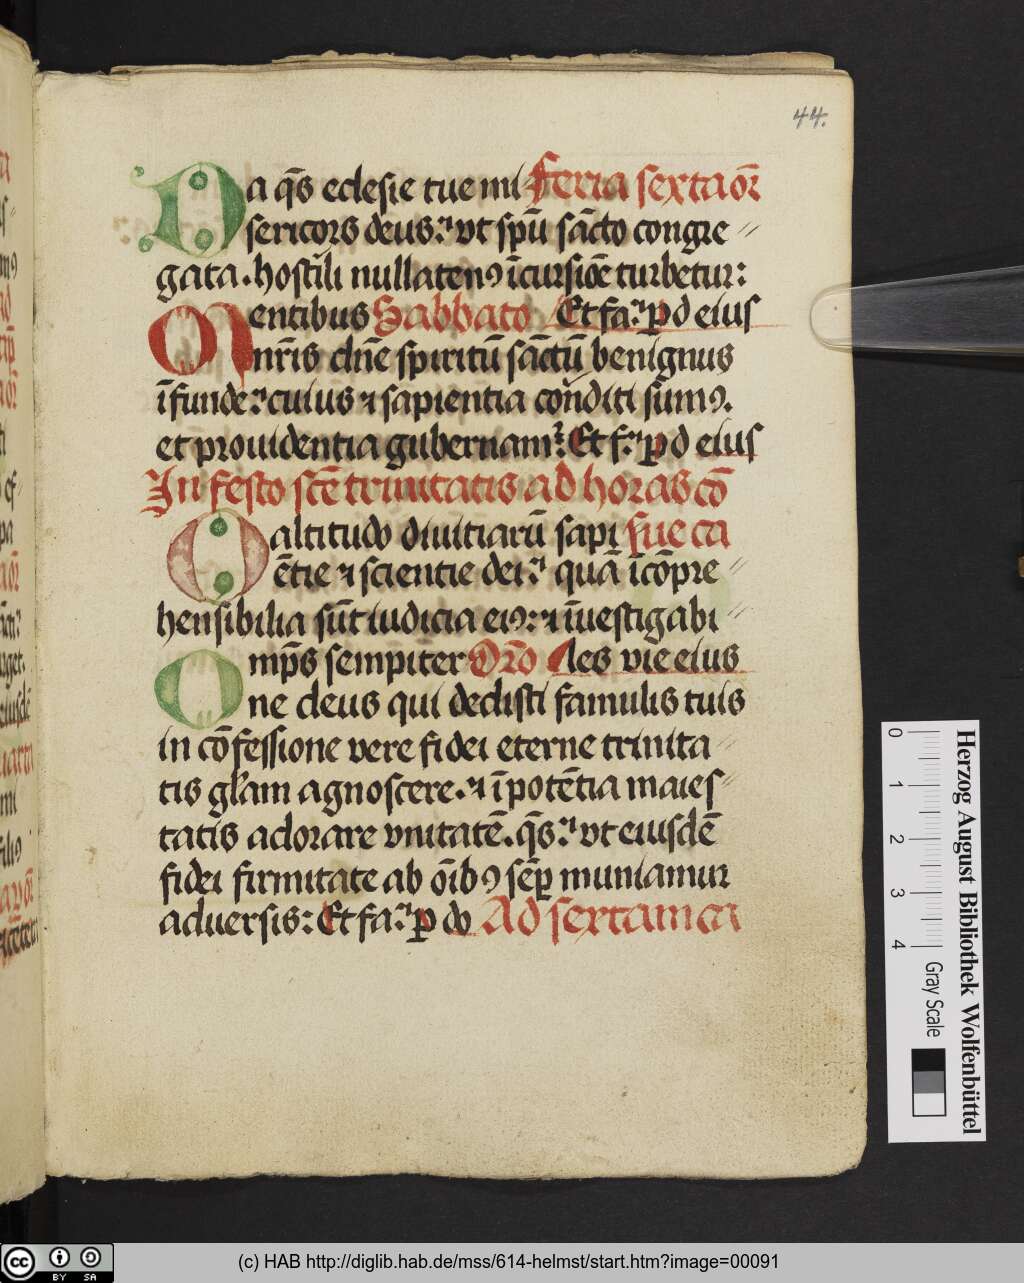 44.
Da q̄s eclesie tue mi Feria sexta or̄
sericors deus: ut sp̄u sācto congre
gata. hostili nullatenꝯ īcursiōe turbetur:
Mentibus Sabbato Et fa. p d eius
nr̄is dn̄e spiritū sāctū benignus
īfunde: cuius ⁊ sapientia conditi sumꝯ.
et prouidentia gubernam: Et f. p d eius
In festo scē trinitatis ad horas cō
O altitudo diuitiarū sapi sue ca
ētie ⁊ scientie dei: quā īcōpre
hensibilia sūt iudicia eiꝯ: ⁊ īuestigabi
Omp̄s sempiter Orō les vie eius
ne deus qui dedisti famulis tuis
in cōfessione vere fidei eterne trinita
tis gl̄am agnoscere. ⁊ ī potētia maies
tatis adorare vnitatē. q̄s: vt eiusdē
fidei firmitate ab ōibꝯ sēp muniamur
aduersis: Et fa. p do Ad sextam ca
0 1 2 3 4
Gray Scale
Herzog August Bibliothek Wolfenbüttel
cc BY SA
(c) HAB http://diglib.hab.de/mss/614-helmst/start.htm?image=00091